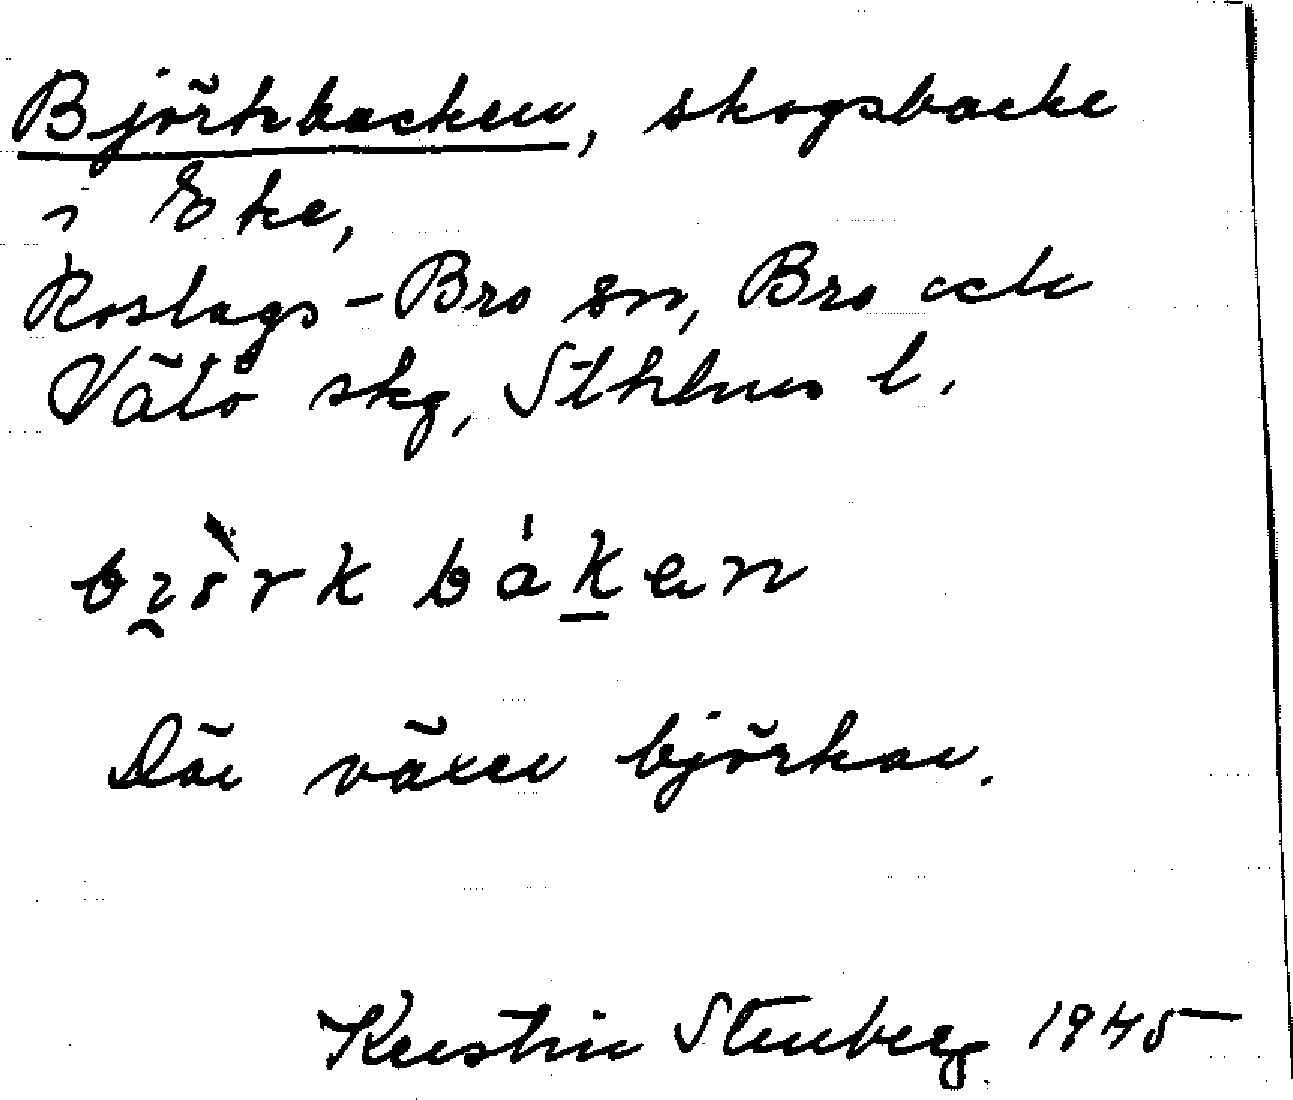 Björkbacken, skogsbacke
i Eke,
Roslags-Bro sn, Bro och
Vätö skg, Sthlms l.
bi̯ö̀rkbák̠en
Där växer björkar.
Kerstin Stenberg 1945